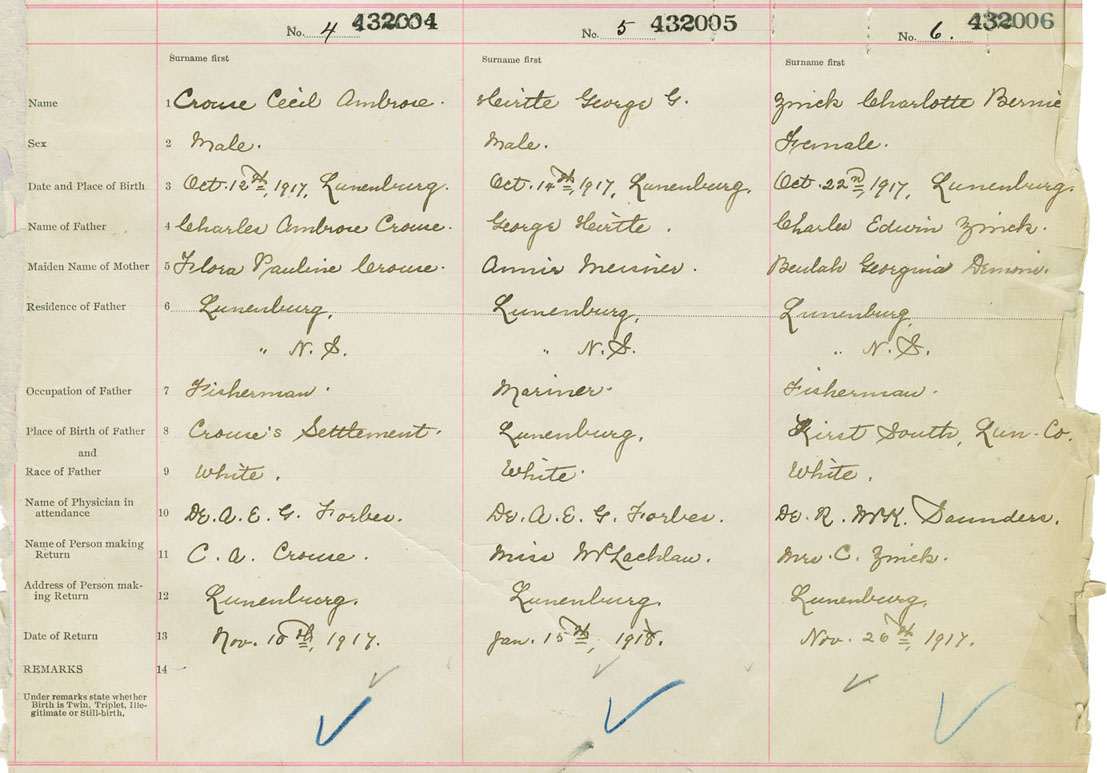 No. 4 432004 No. 5 432005 No. 6. 432006
Surname first Surname first Surname first
Name 1 Crouse Cecil Ambrose. Heirtle George G. Zinck Charlotte Bernie
Sex 2 Male. Male. Female.
Date and Place of Birth 3 Oct. 12th, 1917, Lunenburg. Oct. 14th, 1917, Lunenburg. Oct. 22nd, 1917, Lunenburg.
Name of Father 4 Charles Ambrose Crouse. George Heirtle. Charles Edwin Zinck.
Maiden Name of Mother 5 Flora Pauline Crouse. Annie Meisner. Beulah Georgina
Residence of Father 6 Lunenburg, Lunenburg, Lunenburg,
" N.S. " N.S. " N.S.
Occupation of Father 7 Fisherman. Mariner. Fisherman.
Place of Birth of Father 8 Crouse's Settlement. Lunenburg. First South, Lun. Co.
and
Race of Father 9 White. White. White.
Name of Physician in
attendance 10 Dr. A. E. G. Forbes. Dr. A. E. G. Forbes. Dr. R. McK. Saunders.
Name of Person making
Return 11 C. A. Crouse. Miss McLachlan. Mrs. C. Zinck.
Address of Person mak-
ing Return 12 Lunenburg. Lunenburg. Lunenburg.
Date of Return 13 Nov. 10th, 1917. Jan. 15th, 1918. Nov. 26th, 1917.
REMARKS 14
Under remarks state whether
Birth is Twin, Triplet, Ille-
gitimate or Still-birth.